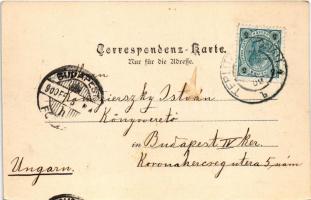 Correspondenz-Karte.
Nur für die Adresse.
BUDAPEST
István
Könyvvezető
in Budapest IV ker.
Ungarn.
Koronaherczeg utcza 5 szám